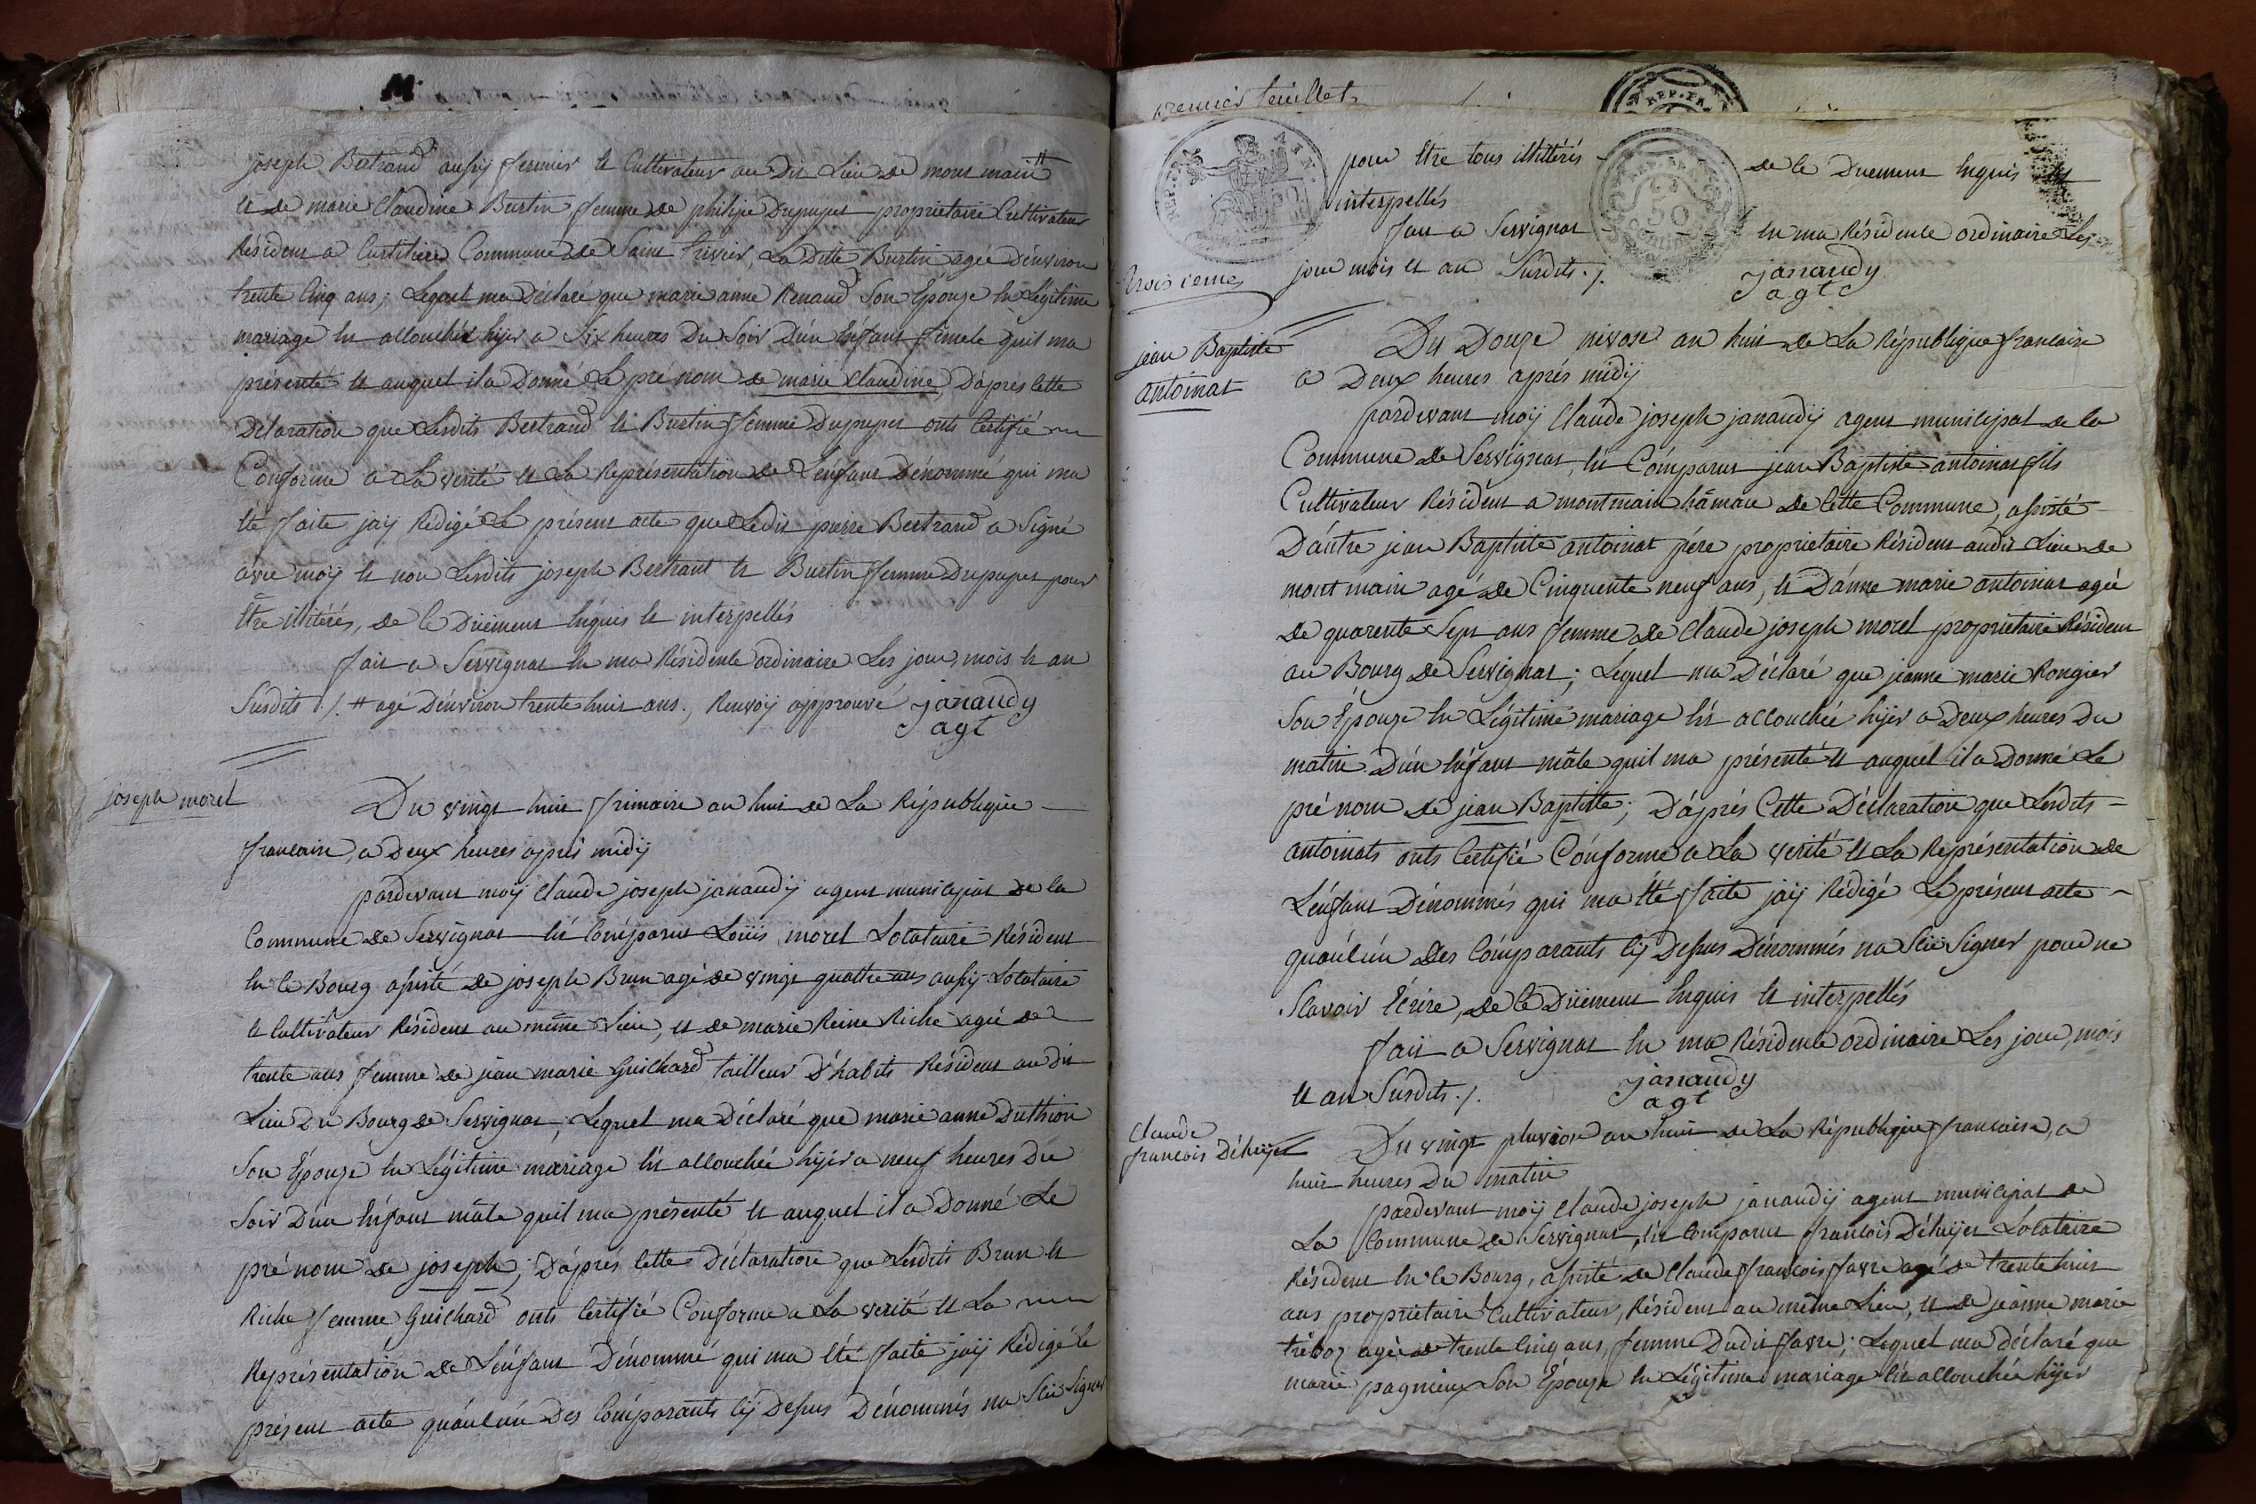 joseph Bertrand aussy fermier et Cultivateur au Dit Lieu de mont main #
et de marie Claudine Burtin femme de philipe Dupupet proprietaire Cultivateur
Résident a Curtiliere Commune de Saint trivier, La Ditte Burtin agee d'énviron
trente Cinq ans; Lequel ma Déclaré que marie anne Renaud Son Épouze En Légitime
mariage Est accouchée hÿer a Six heures Du Soir D'un Enfant fémele quil ma
présenté et auquel il a Donné Le pré nom de marie Claudine, D'apres Cette
Déclaration que Lesdits Bertrand et Burtin femme Dupupet onts Certifié
Conforme a La verité et La Représentation de L'enfant Dénommé qui ma
Été faite jaÿ Rédigé Le présent acte que Ledit pierre Bertrand a Signé
avec moÿ et non Lesdits joseph Bertrant et Burtin femme Dupupet pour
Être illitérés, de Ce Düement Enquis et interpellés
fait a Servignat En ma Résidence ordinaire Les jour, mois et an
Susdits ./. # agé D'énviron trente huit ans., Renvoÿ approuvé janaudy
agt
joseph morel
Du vingt huit frimaire an huit de La République
francaise, a Deux heures après midÿ
pardevant moÿ Claude joseph janaudÿ agent municipal de la
Commune de Servignat Est Comparut Loüis morel Locataire Résident
En Ce Bourg assisté de joseph Brun agé de vingt quattre ans aussÿ Locataire
et Cultivateur Résident au même Lieu, et de marie Reine Riche agée de
trente ans femme de jean marie Guichard tailleur D'habits Résident au dit
Lieu Du Bourg de Servignat; Lequel ma Déclaré que marie anne Duthion
Son Épouze En Légitime mariage Est accouchée hÿer a neuf heures Du
Soir D'un Enfant mâle quil ma présenté et auquel il a Donné Le
pré nom de joseph; D'après Cette Déclaration que Lesdits Brun et
Riche femme Guichard onts Certifié Conforme a La verité et La
Représentation de L'énfant Dénommé qui ma Été faite jaÿ Rédigé Le
présent acte qu'aucun Des Comparants Cÿ Dessus Dénommés na Sçu Signer
premier feuillet
REP. FRA.
pour Être tous illitérés de Ce Duement Enquis et
interpellés
fait a Servignat En ma Résidence ordinaire Les
jour mois et an Susdits ./. janaudy
agt
troisieme
jean Baptiste
antoinat
Du Douze nivose an huit de La République francaise
a Deux heures après midÿ
pardevant moÿ Claude joseph janaudÿ agent municipal de la
Commune de Servignat, Est Comparut jean Baptiste antoinat fils
Cultivateur Résident a montmain hâmau de Cette Commune, assisté
D'autre jean Baptiste antoinat père proprietaire Résident audit Lieu de
mont main agé de Cinquente neuf ans, et D'anne marie antoinat agée
de quarente Sept ans femme de Claude joseph morel proprietaire Résident
au Bourg de Servignat; Lequel ma Déclaré que jeanne marie Rongier
Son Épouze En Légitime mariage Est accouchée hÿer a Deux heures Du
matin D'un Enfant mâle quil ma présenté et auquel il a Donné Le
pré nom de jean Baptiste; D'après Cette Déclaration que Lesdits
antoinats onts Certifié Conforme a La verité et La Représentation de
L'énfant Dénommés qui ma Été faite jaÿ Rédigé Le présent acte
qu'aucun Des Comparants Cÿ Dessus Dénommés na Sçu Signer pour ne
Scavoir Écrire, de Ce Düement Enquis et interpellés
fait a Servignat En ma Résidence ordinaire Les jour, mois
et an Susdits ./. janaudy
agt
Claude
francois
Du vingt pluviose an huit de La République francaise, a
huit heures Du matin
pardevant moÿ Claude joseph janaudÿ agent municipal de
La Commune de Servignat, Est Comparut francois Locataire
Résident En Ce Bourg, assisté de Claude francois favre agé de trente huit
ans proprietaire Cultivateur, Résident au même Lieu, et de jeanne marie
agée de trente Cinq ans, femme Dudit favre; Lequel ma déclaré que
marie pagnieux Son Épouze En Légitime mariage Est accouchée hÿer